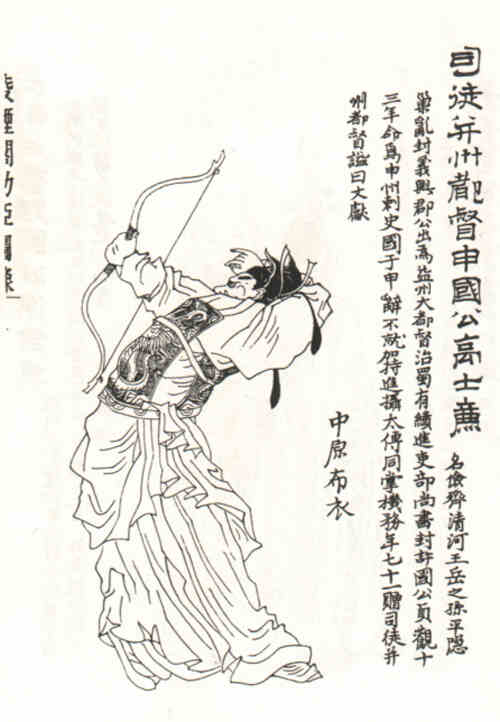 司徒并州都督申國公高士廉
名儉齊清河王岳之孫平隱
巢亂封義興郡公出為益州大都督治蜀有績進吏部尚書封許國公貞觀十
三年命為申州刺史國于甲辭不就加特進攝太傅同掌機務年七十一贈司徒并
州都督謚曰文獻
中原布衣
凌煙閣功臣圖像